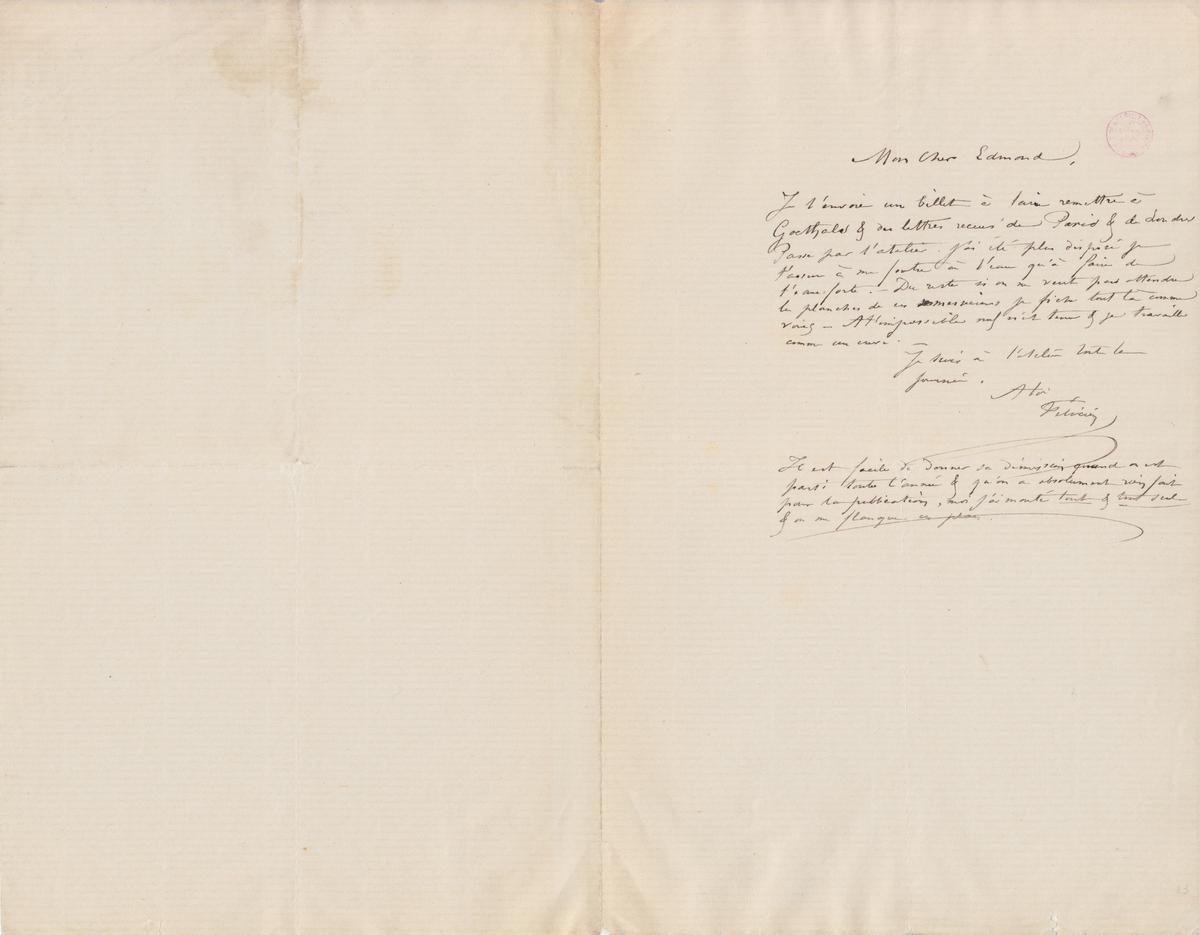 Mon Cher Edmond,
Je t'envoie un billet à faire remettre à
Goethals & des lettres reçues de Paris & de Londres
Passe par l'atelier. J'ai été plus disposé je
t'assure à me foutre à l'eau qu'à faire de
l'eau-forte. – Du reste si on ne veut pas attendre
les planches de ces messieurs je fiche tout là comme
– A l'impossible nul n'est tenu & je travaille
comme un
Je suis à l'atelier toute la
journée.
A toi
Félicien
Il est facile de donner sa démission quand on est
parti toute l'année & qu'on a absolument rien fait
pour la publication, moi j'ai monté tout & tout seul
& on me flanque en plan.